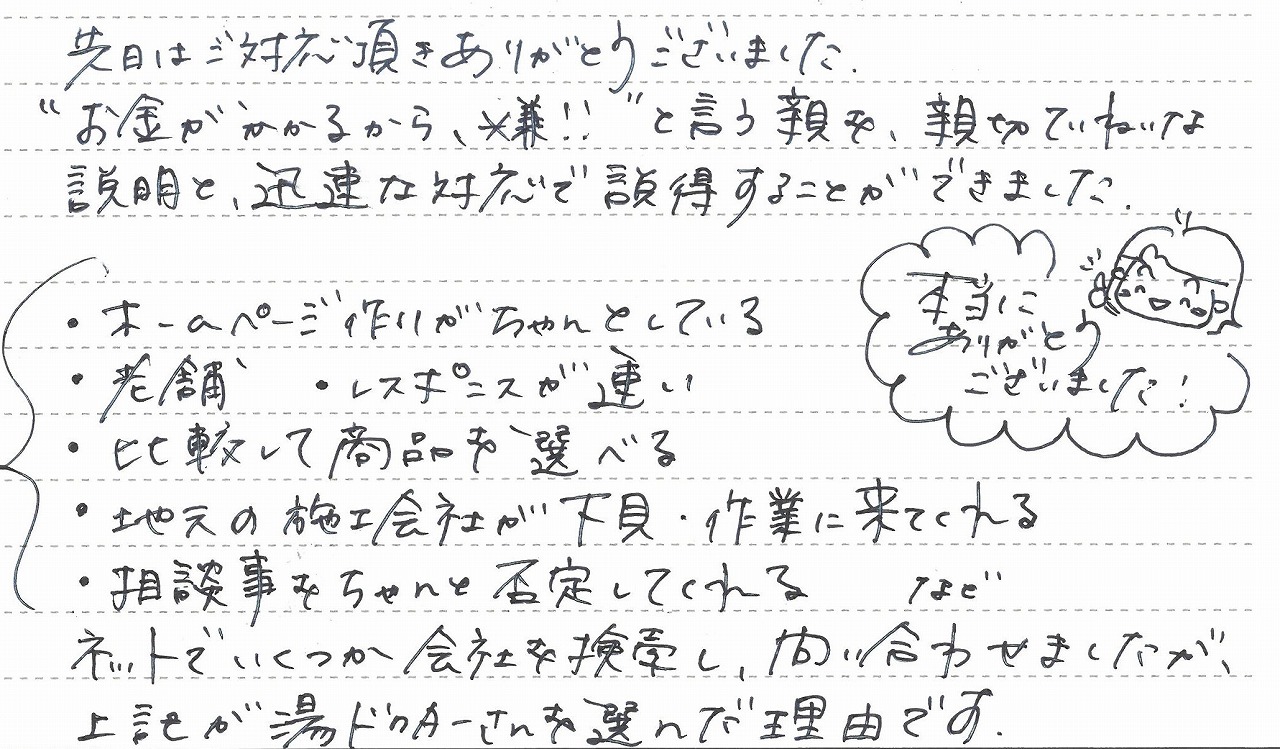 先日はご対応頂きありがとうございました.
"お金がかかるから、嫌!!"と言う親を、親切ていねいな
説明と、迅速な対応で説得することができました.
・ホームページ作りがちゃんとしている
・老舗 ・レスポンスが速い
・比較して商品を選べる
・地元の施工会社が下見・作業に来てくれる
・相談事をちゃんと否定してくれる など
本当に
ありがとう
ございました!
ネットでいくつか会社を検索し、問い合わせましたが、
上記が湯ドクターさんを選んだ理由です.